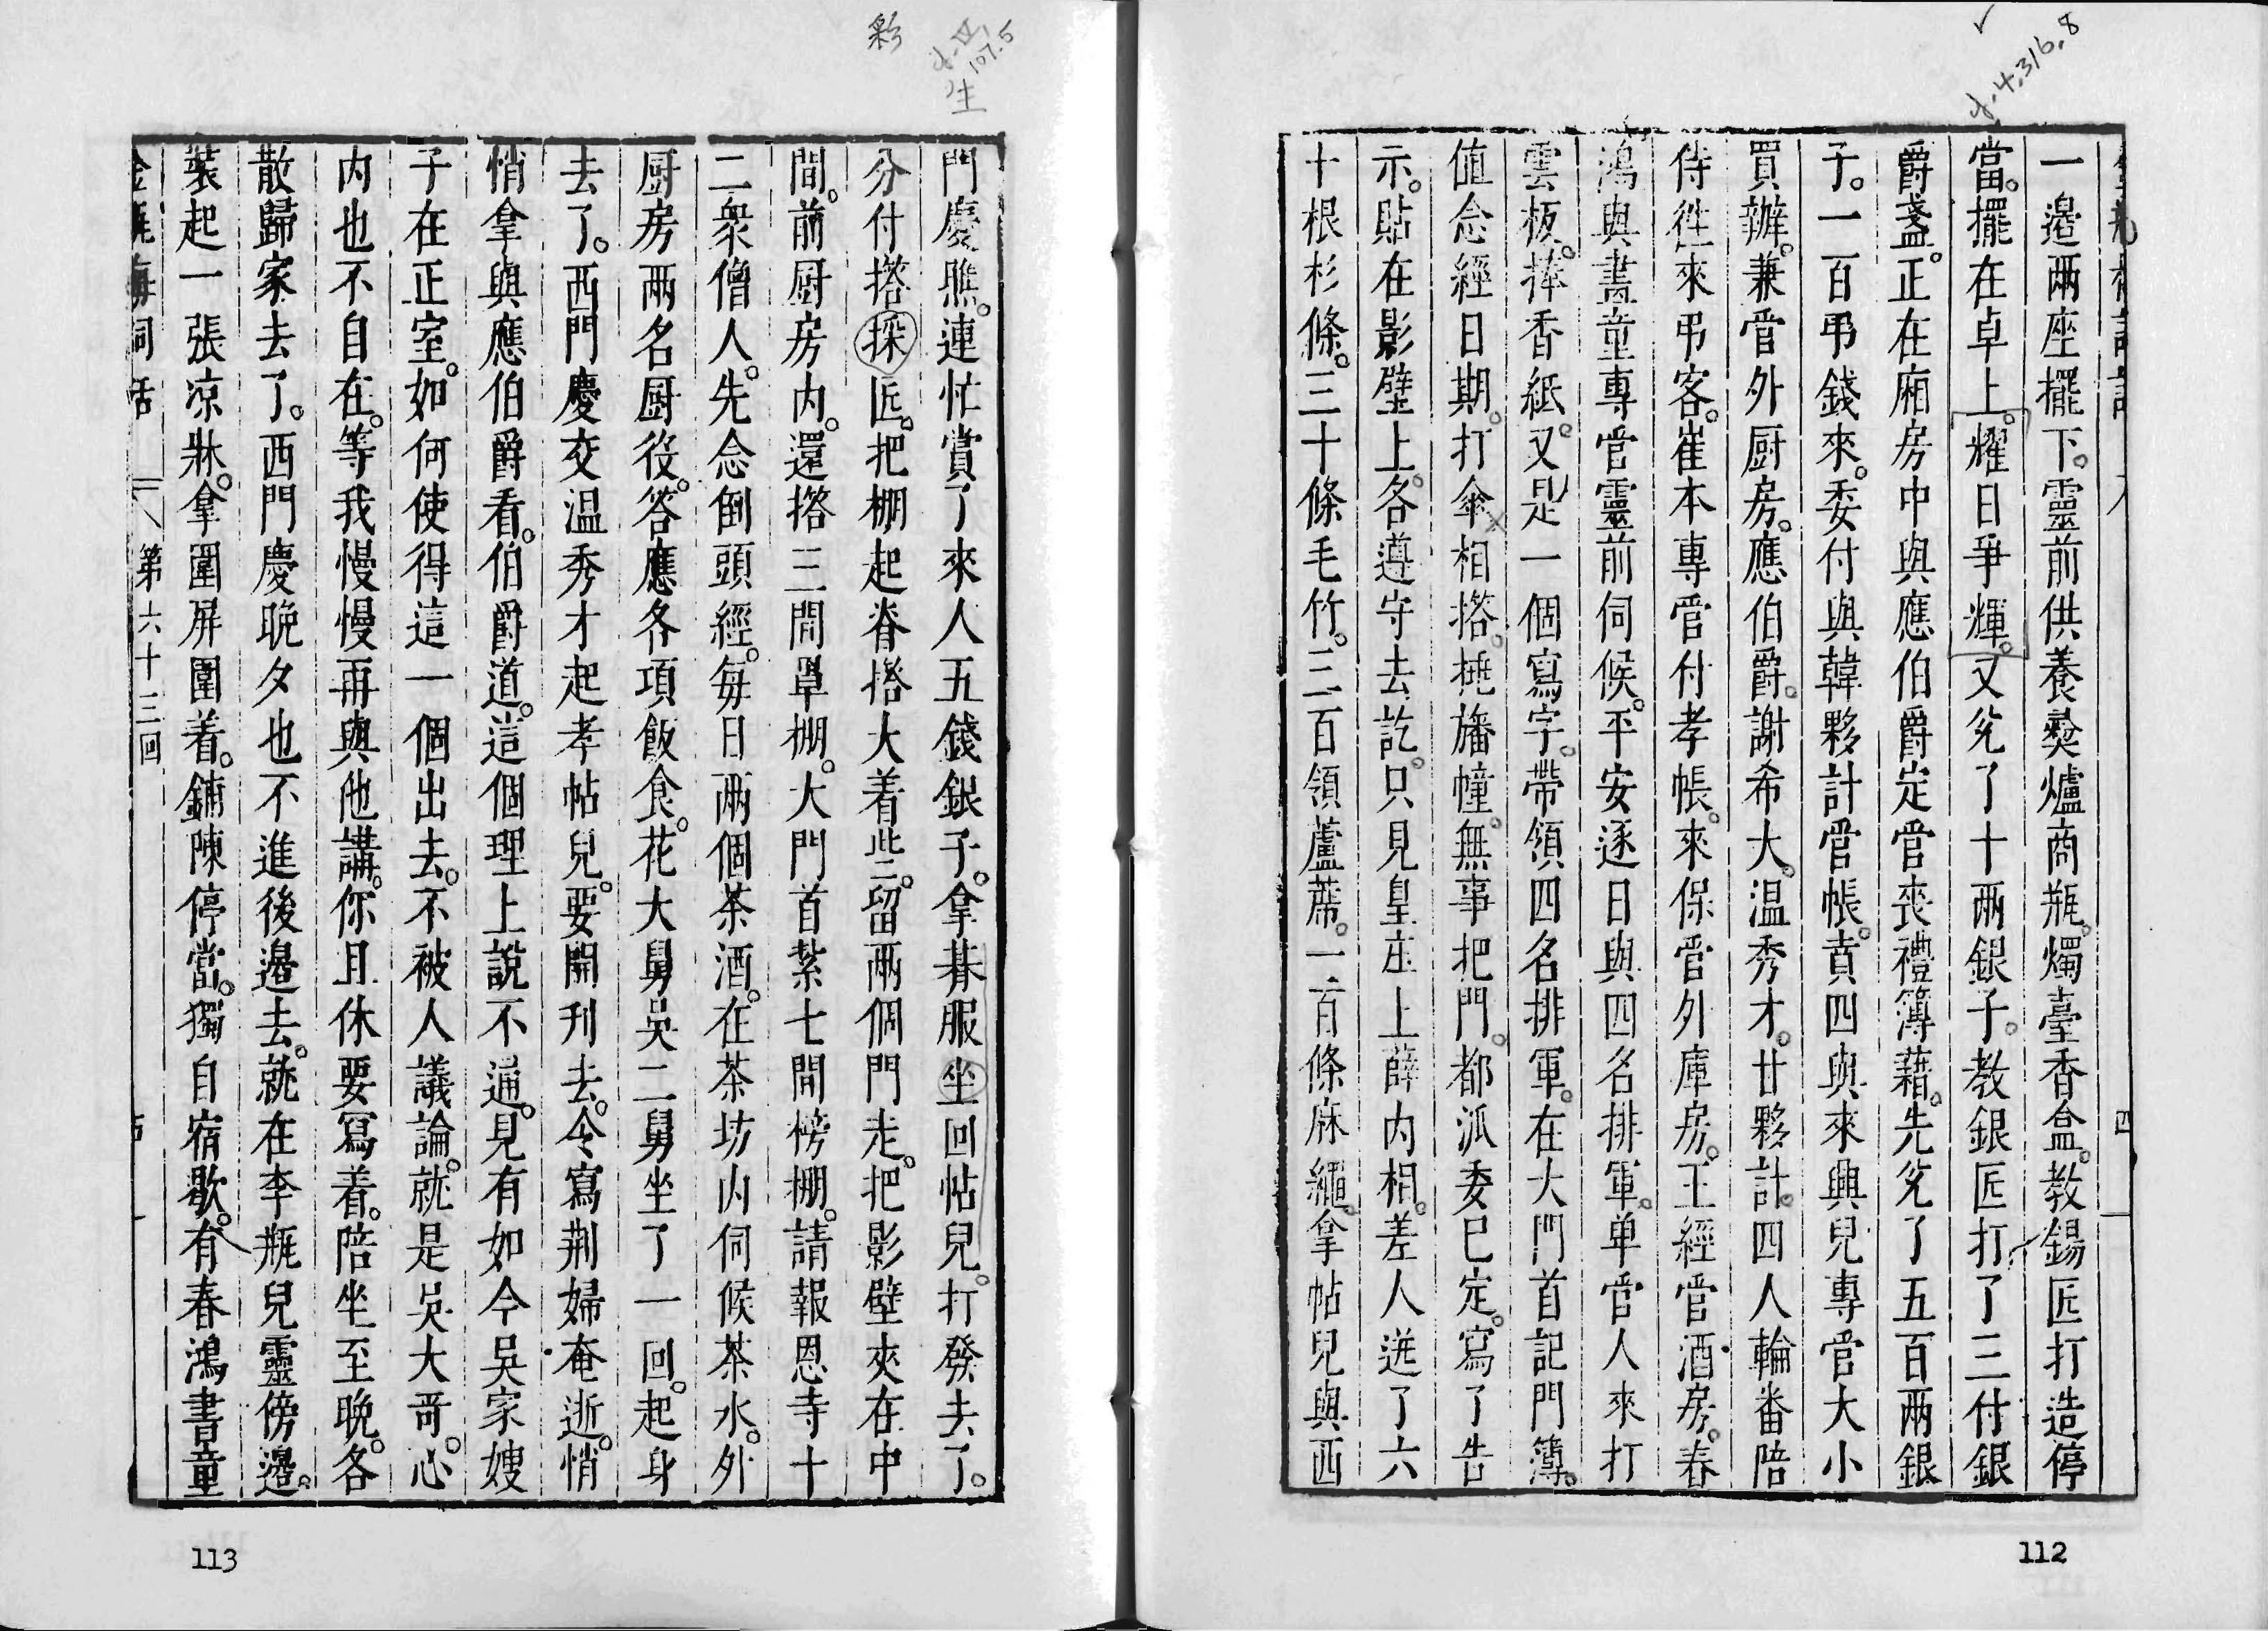 一邉兩座擺下。靈前供養奠爐商瓶。燭臺香盒。教錫匠打造停
當。擺在卓上。耀日爭輝。又兊了十兩銀子。教銀匠打了三付銀
爵盞。正在廂房中與應伯爵定管喪禮簿藉。先兊了五百兩銀
子。一百弔錢來。委付與韓夥計管帳。賁四與來興兒專管大小
買辦。兼管外厨房。應伯爵。謝希大。温秀才。甘夥計。四人輪番陪
侍徃來弔客。崔本專管付孝帳。來保管外庫房。王經管酒房。春
鴻與畫童專管靈前伺候。平安逐日與四名排軍。单管人來打
雲板。捧香紙。又是一個寫字。帶領四名排軍。在大門首記門簿。
值念經日期。打傘相搭。挑旛幢。無事把門。都派委已定。寫了告
示。貼在影壁上。各遵守去訖。只見皇庄上薛内相。差人送了六
十根杉條。三十條毛竹。三百領蘆蓆。一百條麻繩。拿帖兒與西
112
四
門慶瞧。連忙賞了來人五錢銀子。拿朞服坐回帖兒。打發去了。
分付搭採匠。把棚起脊搭大着些。留兩個門走。把影壁夾在中
間。前厨房内。還搭三間罩棚。大門首紥七間榜棚。請報恩寺十
二衆僧人。先念倒頭經。每日兩個茶酒。在茶坊内伺候茶水。外
厨房兩名厨役。答應各項飯食。花大舅吳二舅坐了一回。起身
去了。西門慶交温秀才起孝帖兒。要開刊去。令寫荆婦奄逝。悄
悄拿與應伯爵看。伯爵道。這個理上說不通。見有如今吳家嫂
子在正室。如何使得這一個出去。不被人議論。就是吳大哥。心
内也不自在。等我慢慢再與他講。你且休要寫着。陪坐至晚。各
散歸家去了。西門慶晚夕也不進後邉去。就在李瓶兒靈傍邉。
裝起一張凉牀。拿圍屏圍着。鋪陳停當。獨自宿歇。有春鴻書童
金瓶梅詞話 第六十三回
113
彩
生
107.5
4.316.8